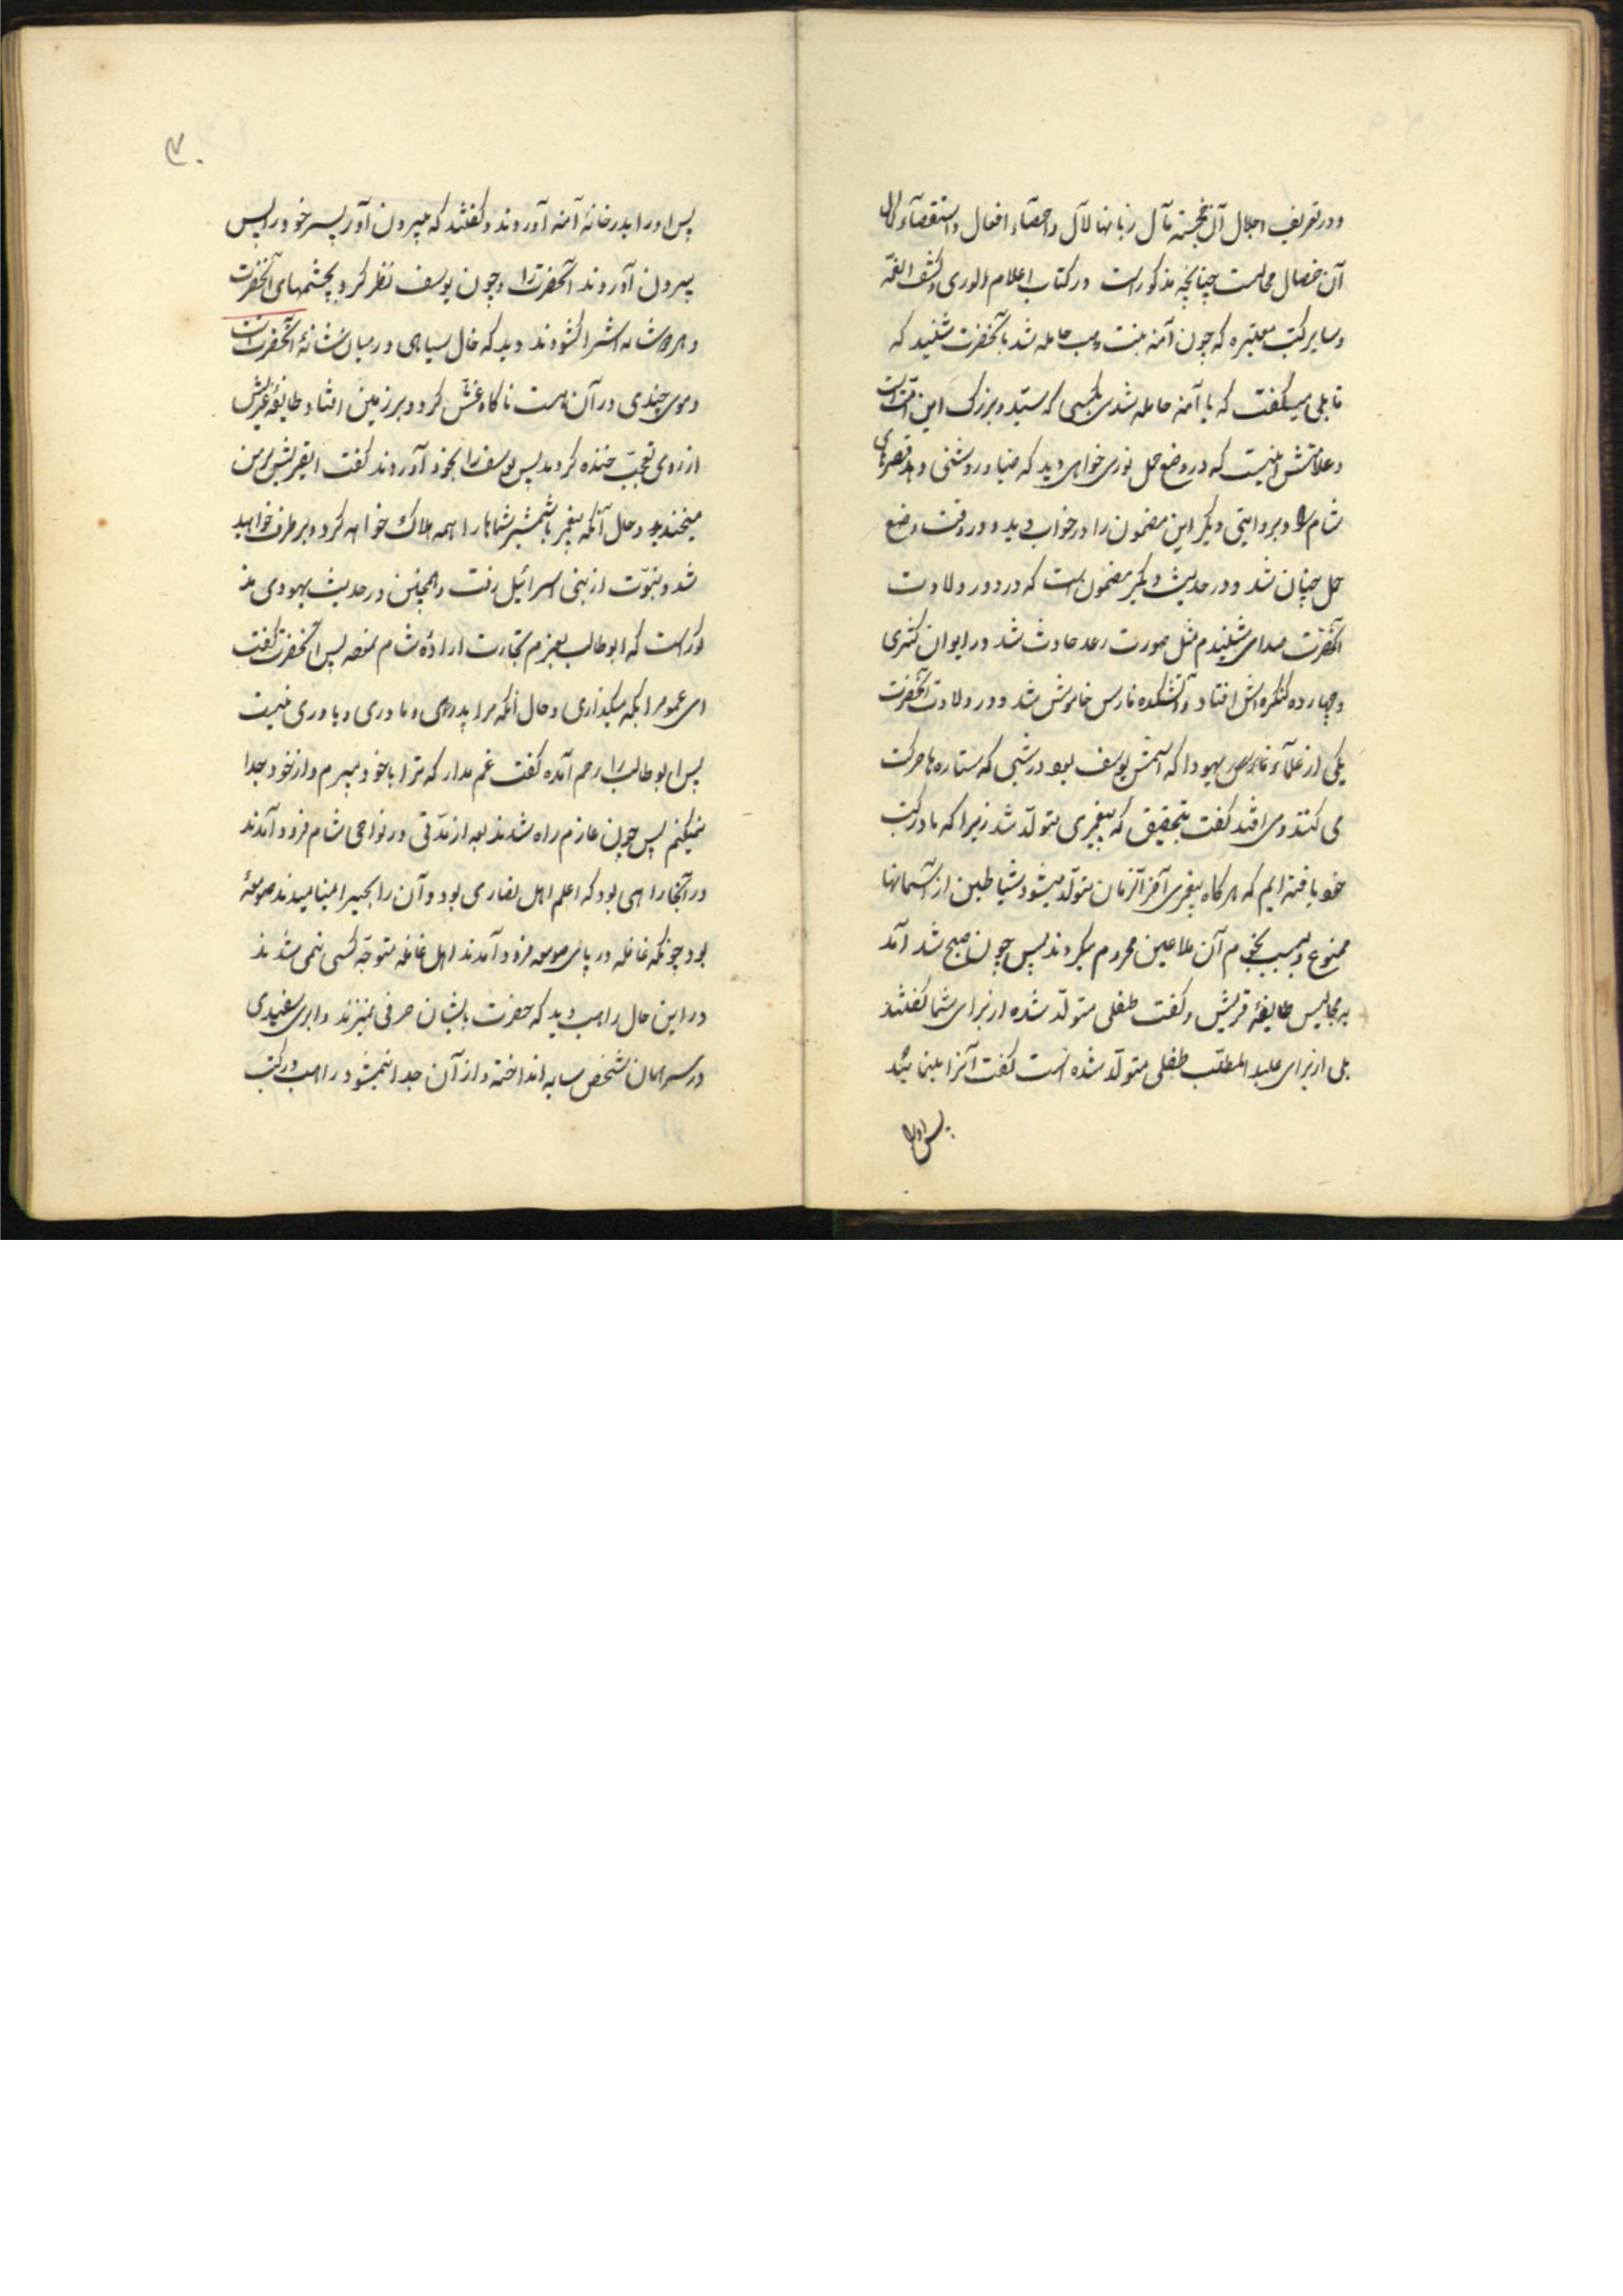 و در تعریف و جلال آن خجسته مآل زبانها لآل و احصاء افعال و استقصآء کمال
آن خصال محالست چنانچه مذکور است در کتاب اعلام الوری و کشف الغمّه
و سایر کتب معتبره که چون آمنه بنت وهب حامله شد بآنحضرت شنید که
قایلی میگفت که یا آمنه حامله شدی بکسی که سیّد و بزرگ این امّت است
و علامتش اینست که در وضع حمل نوری خواهی دید که ضیا و روشنی دهد قصرهای
شام را و بروایتی دیگر این مضمون را در خواب دید و در وقت وضع
حمل چنان شد و در حدیث دیگر مضمون است که در دور ولادت
آنحضرت صدای شنیدم مثل صورت رعد حادث شد در ایوان کسری
و چهارده کنکره‌اش افتاد و آتشکده فارس خاموش شد و در ولادت آنحضرت
یکی از علمآء یهودا که اسمش یوسف بود در شبی که ستاره‌ها حرکت
می کنند و می افتد گفت بتحقیق که پیغمبری متولّد شد زیرا که ما در کتب
خود یافته‌ایم که هر کاه پیغمبری آخر الزمان متولّد میشود شیاطین از آسمانها
ممنوع و بسبب نجوم آن ملاعین محروم میکردند پس چون صبح شد آمد
بر مجالیس طایفهٔ قریش و گفت طفلی متولّد شده از برای شما گفتند
بلی از برای عبد المطلّب طفلی متولّد شده است گفت آنرا بنمائید
پس او را
۳۰
پس او را بدر خانهٔ آمنه آوردند و گفتند که بیرون آور پسر خود را پس
بیرون آوردند آنحضرت را و چون یوسف نظر کرد بچشمهای آنحضرت
و هر دو شانه‌اش را کشودند دید که خال سیاهی در میان شانهٔ آنحضرت است
و موی چندی در آن هست ناکاه غش کرد و بر زمین افتاد طایفهٔ قریش
از روی تعجّب خنده کردند پس یوسف را بخود آوردند گفت ایقریش بر من
میخندید و حال آنکه پیغمبر با شمشیر شماها را همه هلاک خواهد کرد و بر طرف خواهید
شد و نبوّت از بنی اسرائیل رفت و همچنین در حدیث یهودی مذ
کور است که ابوطالب بعزم تجارت ارادهٔ شام نموده پس آنحضرت گفت
ای عمو مرا بکه میکذاری و حال آنکه مرا پدری و مادری و یاوری نیست
پس ابوطالب را رحم آمده گفت غم مدار که ترا با خود میبرم و از خود جدا
نمیکنم پس چون عازم راه شدند بعد از مدّتی در نواحی شام فرود آمدند
در آنجا راهبی بود که اعلم اهل نصاری بود و آن را بحیرا مینامیدند صومعهٔ
بود چونکه غافله در پای صومعه فرود آمدند اهل غافله متوجّه کسی نمی شدند
در این حال راهب دید که حضرت بایشان حرفی نمیزند و ابری سفیدی
در سر همان شخص سایه انداخته و از آن جدا نمیشود راهب در کتب